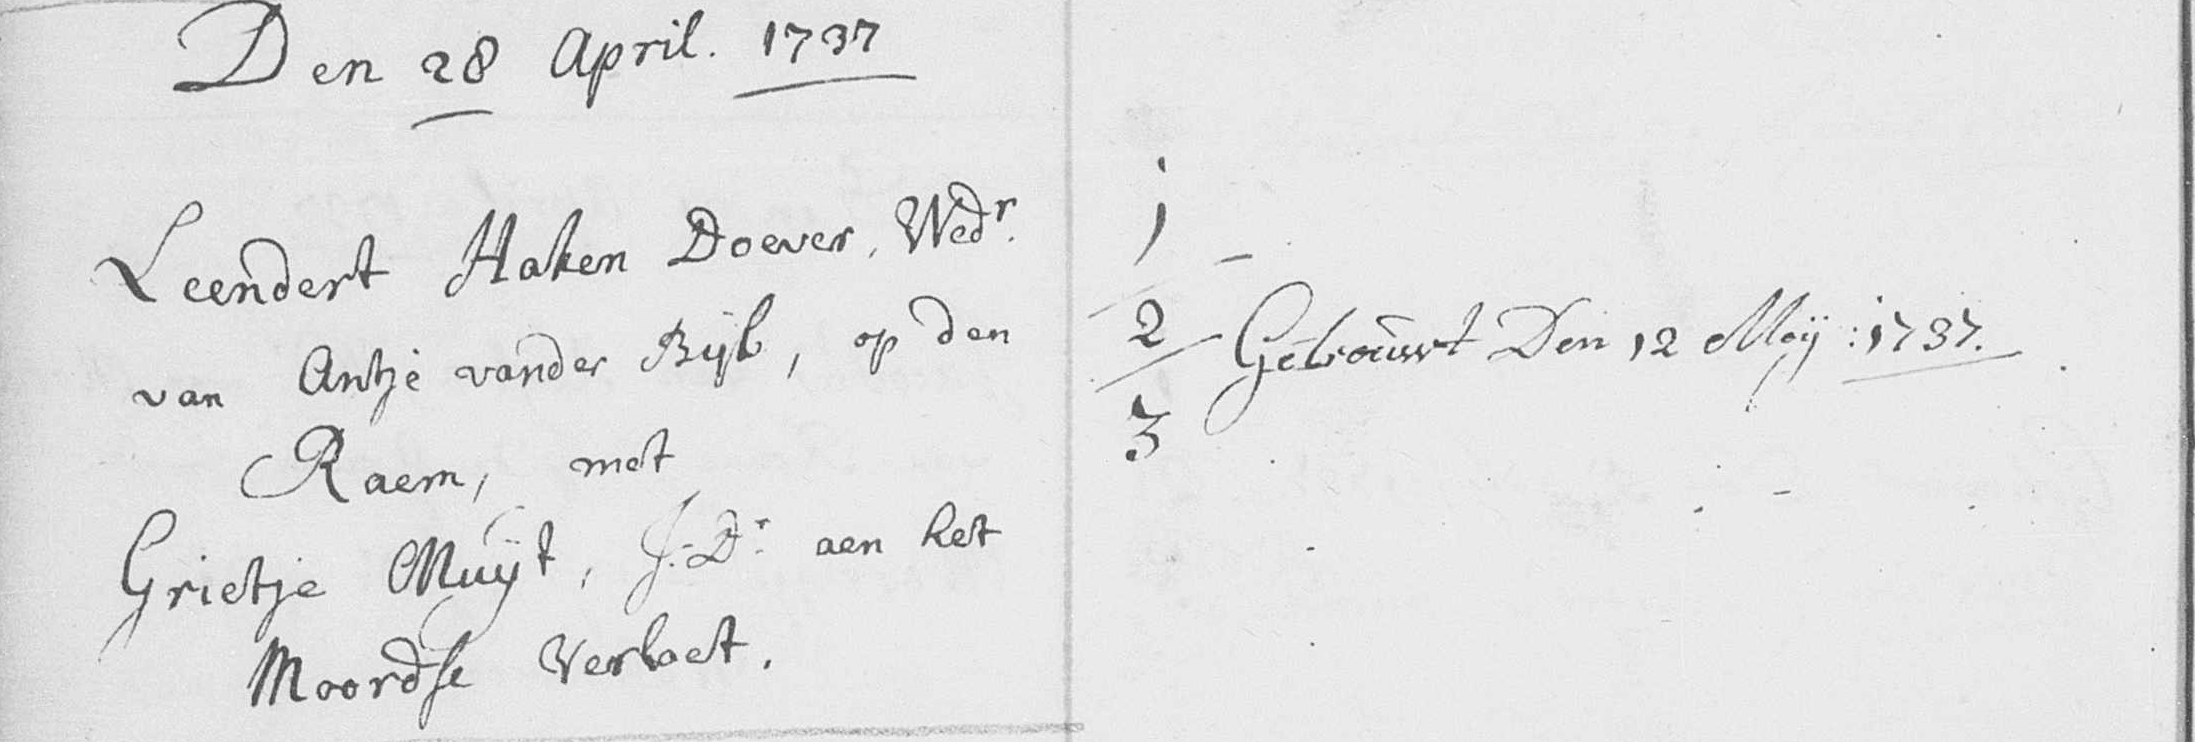 Den 28 April. 1737
Leendert Haken Doever, Wedr.
van Antje vander Bijl, op den
Raem, met
Grietje Muijt, J: Dr: aen het
Moordse Verlaet.
1
2 Getrouwt Den 12 Meij: 1737.
3